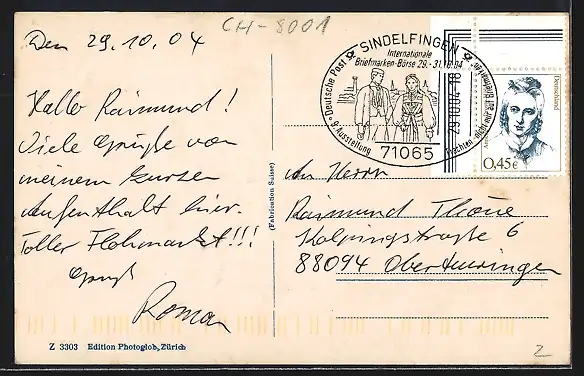 CH-8001
Den 29.10.04
Hallo Raimund!
Viele Grüße von
meinem kurzen
Aufenthalt hier.
Toller Flohmarkt!!!
Gruß
Roman
Z 3303 Edition Photoglob, Zürich
(Fabrication Suisse)
Deutsche Post
SINDELFINGEN
Internationale
Briefmarken-Börse 29.-31.10.04
Ausstellung
71065
29.10.04-16
Deutschland
0,45€
An Herrn
Raimund
Kolpingstraße 6
88094 Oberteuringen
Z